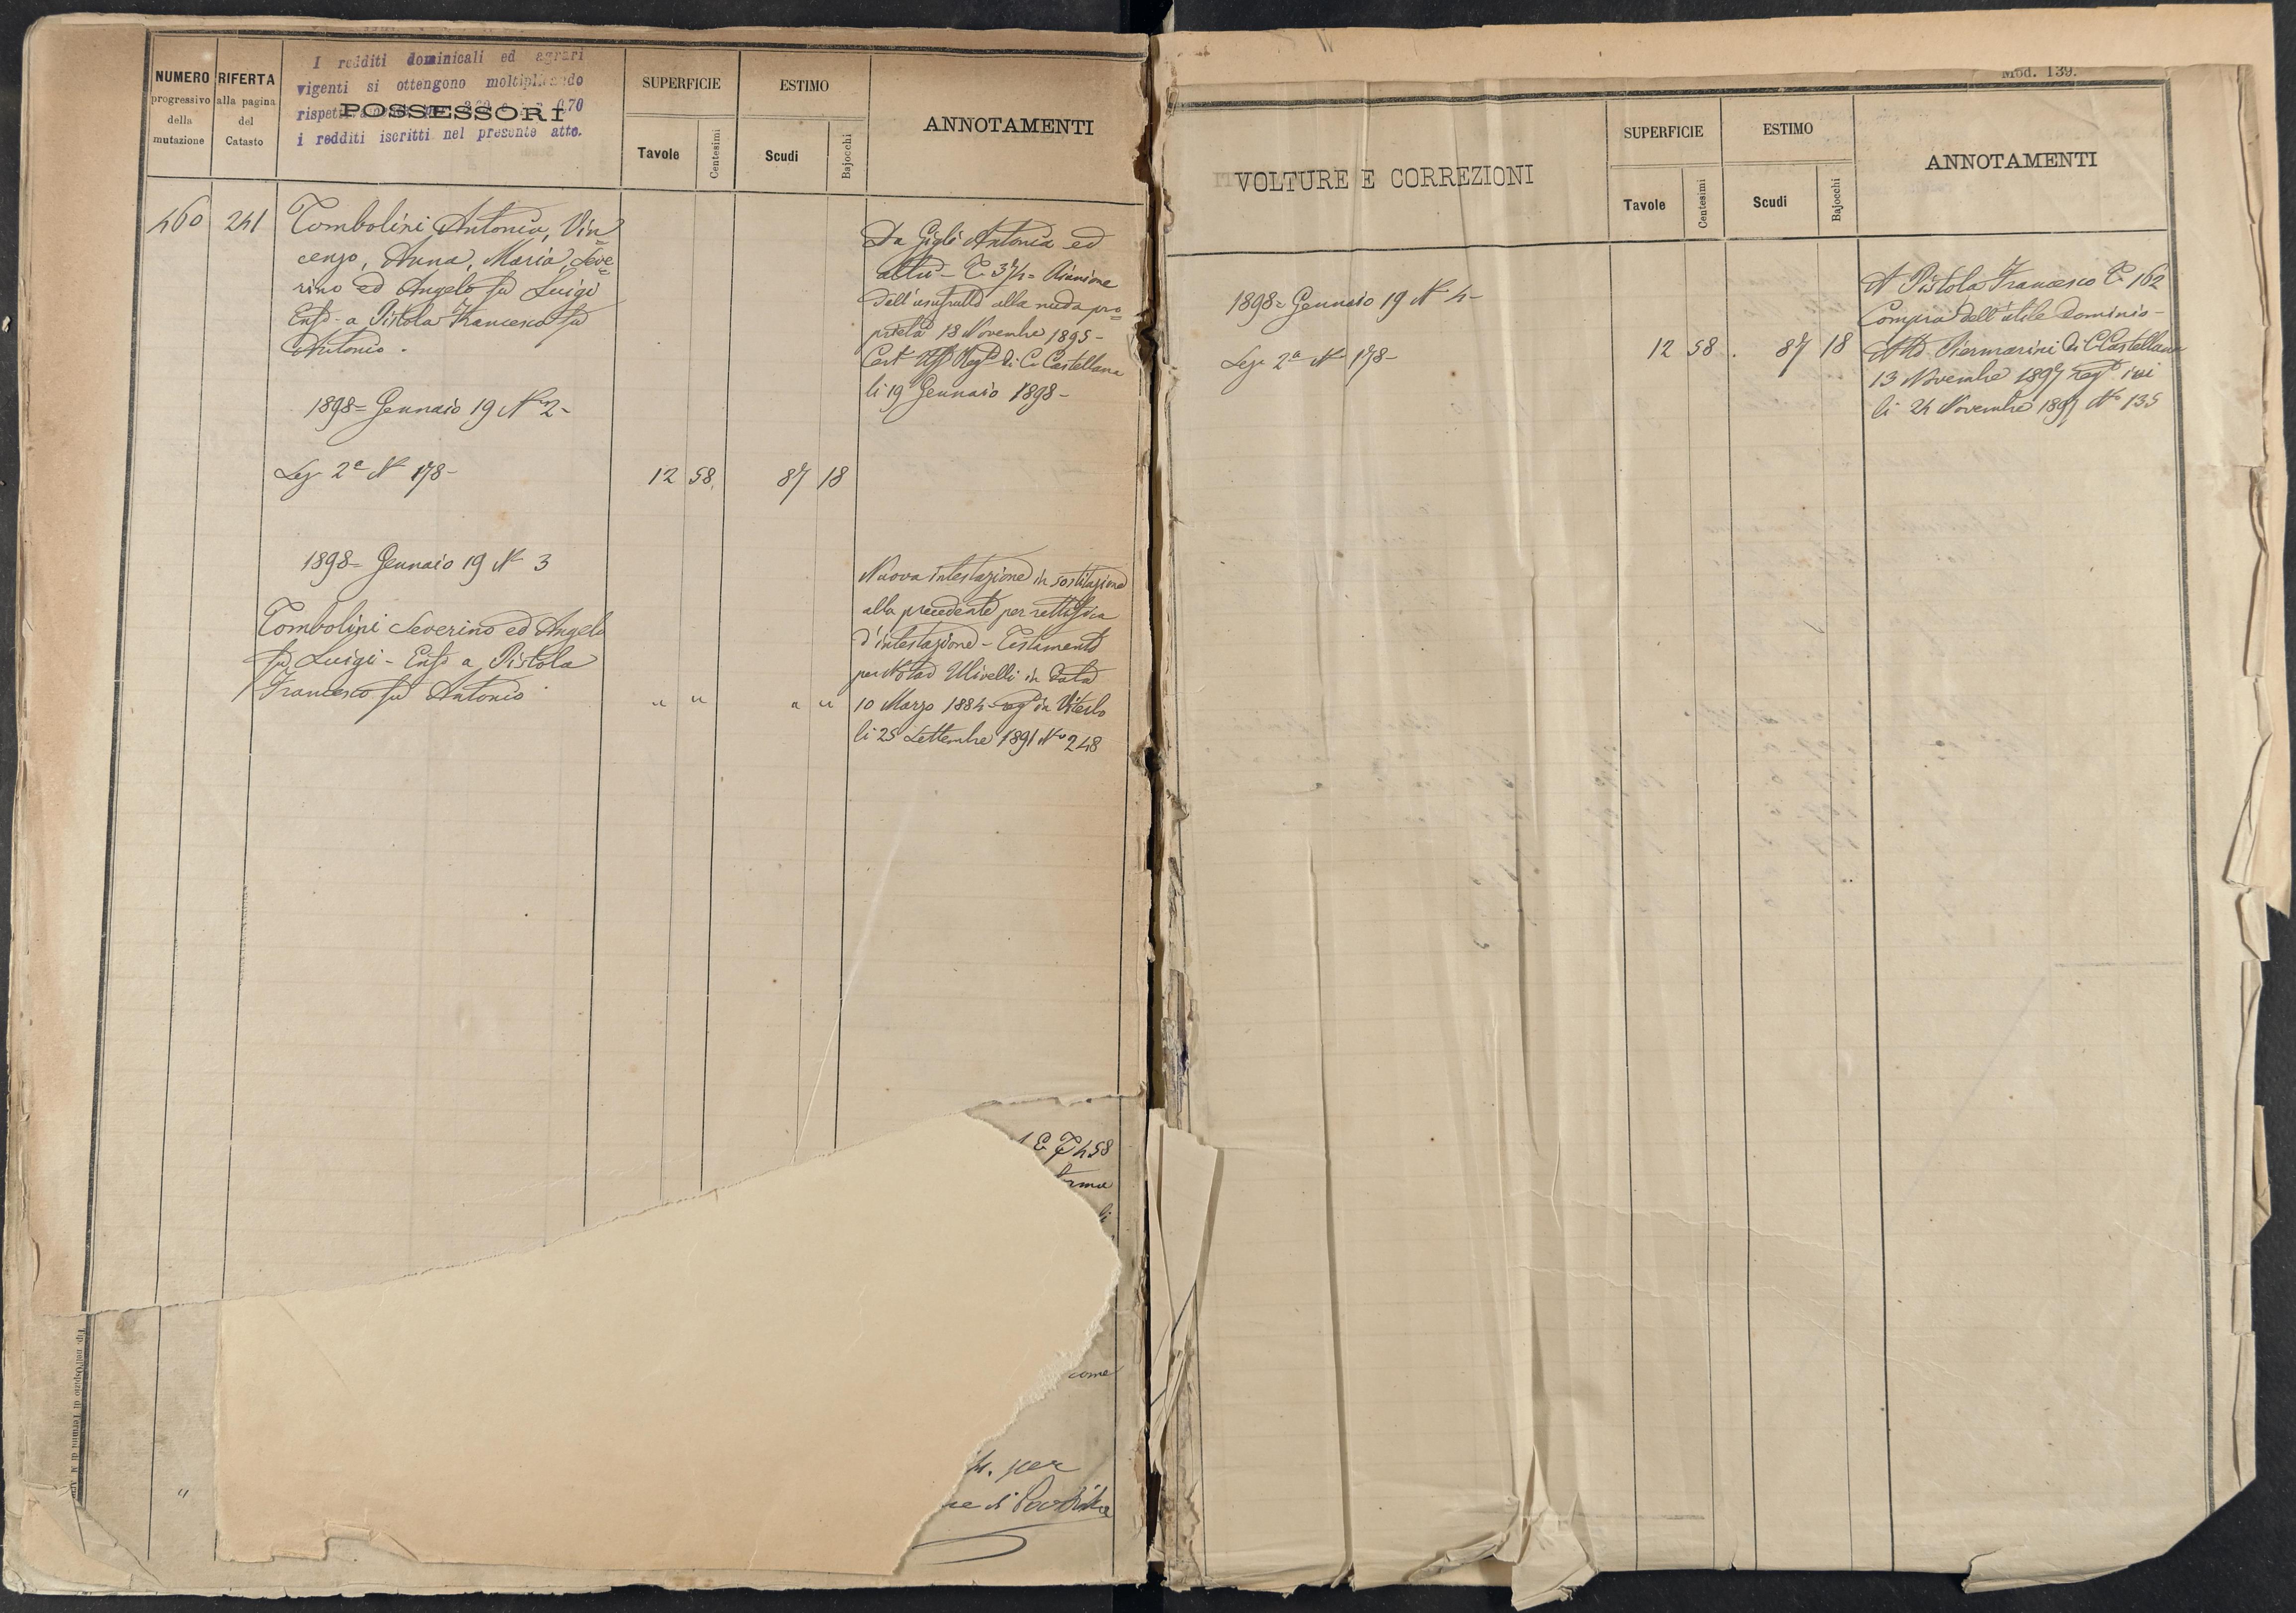 NUMERO
progressivo
della
mutazione
RIFERTA
alla pagina
del
Catasto
I redditi dominicali ed agrari
vigenti si ottengono moltiplicando
POSSESSORI
i redditi iscritti nel presente atto.
SUPERFICIE
Tavole
Centesimi
ESTIMO
Scudi
Bajocchi
ANNOTAMENTI
460 241 Tombolini Antonio, Vin=
cenzo, Anna, Maria, Seve=
rino ed Angelo fu Luigi
Enfo a Pistola Francesco fu
Antonio.
1898= Gennaio 19 N 2-
Lez 2a N 178- 12 58 87 18
1898= Gennaio 19 N 3
Tombolini Severino ed Angelo
fu Luigi - Enfo a Pistola
Francesco fu Antonio " " " "
Da Gigli Antonia ed
altri - C. 374 = Riunione
dell'usufrutto alla nuda pro=
prietà 18 Novembre 1895-
Cert Uff Regro di C. Castellana
li 19 Gennaio 1898-
Nuova intestazione in sostituzione
alla precedente per rettifica
d'intestazione - Testamento
per Notar Ulivelli in data
10 Marzo 1884 regto in Viterbo
li 25 Settembre 1891 No 248
E C 458
come
per
Tip. nell'Ospizio di Termini di N.
"
Mod. 139.
VOLTURE E CORREZIONI
SUPERFICIE
Tavole
Centesimi
ESTIMO
Scudi
Bajocchi
ANNOTAMENTI
1898= Gennaio 19 N 4-
Lez 2a N 178- 12 58 . 87 18
A Pistola Francesco C 162
Compra dell'utile Dominio-
Atto Piermarini di C. Castellana
13 Novembre 1897 regto ivi
li 24 Novembre 1897 No 135